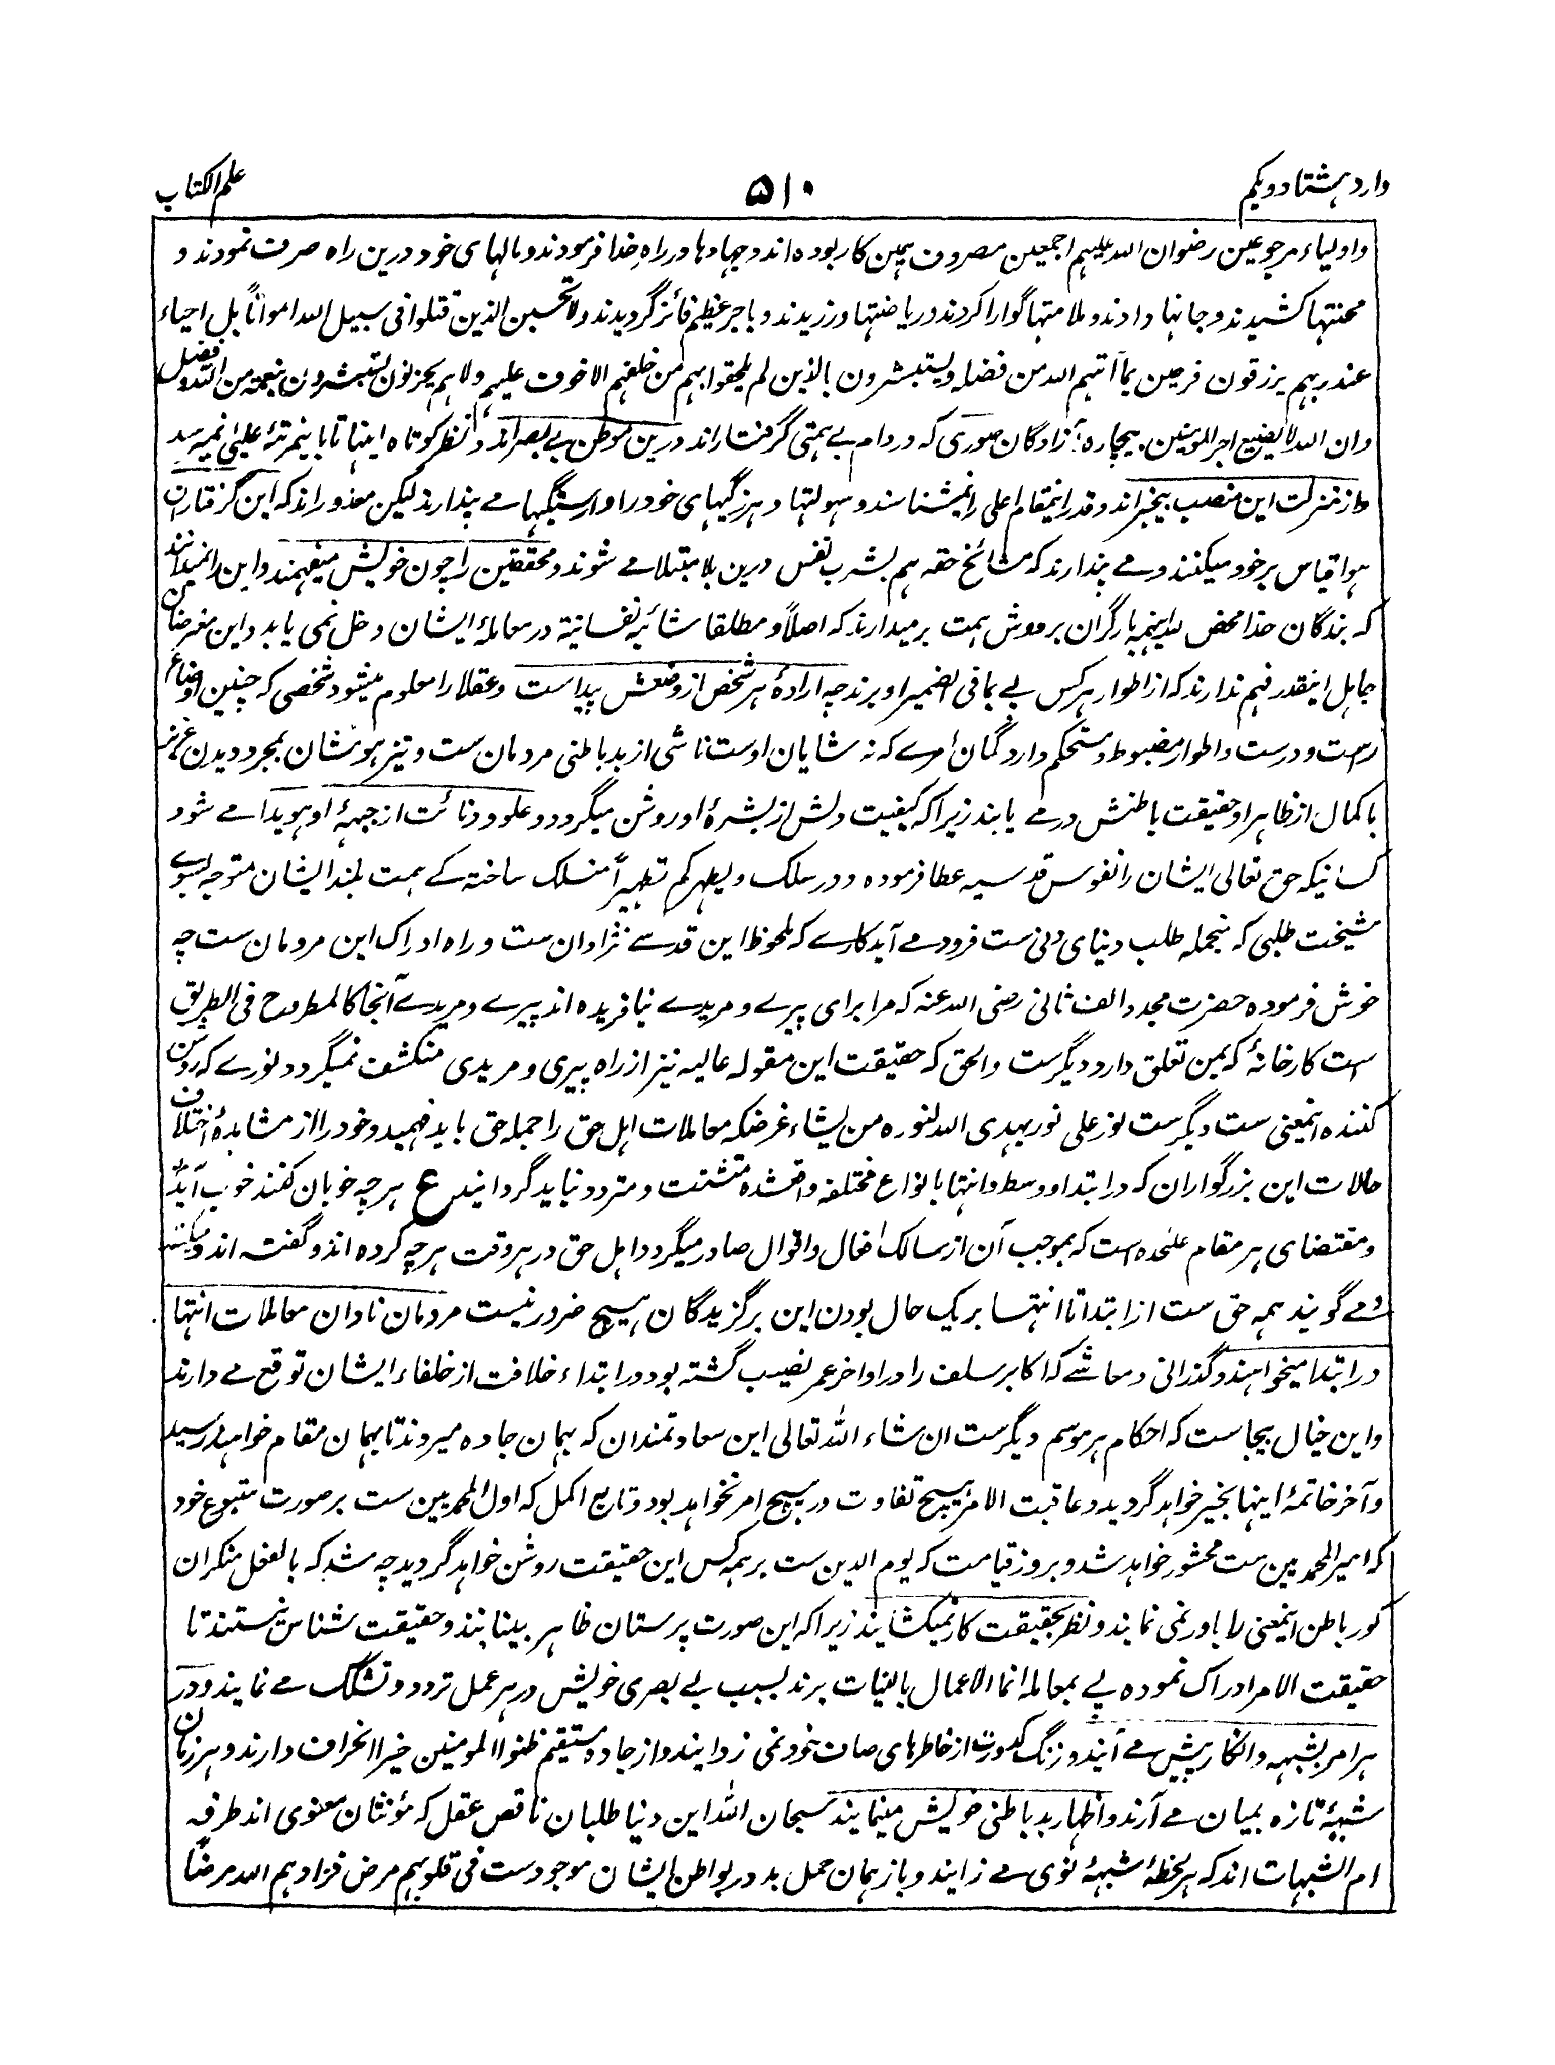 وارد ہشتاد و یکم
۵۱۰
علم الکتاب
و اولیاء مرجوعین رضوان اللہ علیہم اجمعین مصروف ہمین کار بوده اند و جہادہا در راہ خدا فرمودند و مالہای خود درین راہ صرف نمودند و
محنتہا کشیدند و جانہا دادند و ملامتہا گوارا کردند و ریاضتہا ورزیدند و باجر عظیم فائز گردیدند و لا تحسبن الذین قتلوا فی سبیل اللہ امواتاً بل احیاء
عند ربہم یرزقون فرحین بما آتہم اللہ من فضلہ و یستبشرون بالذین لم یلحقوا بہم من خلفہم الا خوف علیہم ولا ہم یحزنون یستبشرون بنعمۃ من اللہ و فضل
و ان اللہ لا یضیع اجر المومنین بیچارہ آزادگان صوری کہ در دام بے ہمتی گرفتار اند درین موطن بے بصر اند و نظر کوتاہ اینہا تا باینمرتبۂ علیٰ نمیرسد
و از منزلت این منصب بیخبر اند و قدر اینمقام اعلی را نمیشناسند و سہولتہا و ہرزگیہای خود را وارستگیہا مے پندارند لیکن معذور اند کہ این گرفتاران
ہوا قیاس بر خود میکنند و مے پندارند کہ مشائخ حقہ ہم بشرب نفس درین بلا مبتلا مے شوند و محققین را چون خویش میفہمند و این را نمیدانند
کہ بندگان خدا محض للہ اینہمہ بار گران بر دوش ہمت برمیدارند کہ اصلاً و مطلقا شائبہ نفسانیۃ در معاملۂ ایشان دخل نمی یابد و این مغرضان
جاہل اینقدر فہم ندارند کہ از اطوار ہر کس پے بما فی الضمیر او برند چہ ارادۂ ہر شخص از وضعش پیداست و عقلا را معلوم میشود شخصی کہ چنین اوضاع
راست و درست و اطوار مضبوط و مستحکم دارد گمان امرے کہ نہ شایان اوست ناشی از بد باطنی مردمان ست و تیز ہوشان بمجرد دیدن
با کمال از ظاہر او حقیقت باطنش در مے یابند زیرا کہ کیفیت دلش از بشرۂ او روشن میگردد و علو و دنائت از جبہۂ او ہویدا مے شود
کسانیکہ حق تعالی ایشان را نفوس قدسیہ عطا فرموده و در سلک و یطہرکم تطہیراً منسلک ساختہ کے ہمت بلند ایشان متوجہ بسوے
مشیخت طلبی کہ منجملہ طلب دنیای دنی ست فرود مے آید کارے کہ ملحوظ این قدسے نژادان ست وراہ ادراک این مردمان ست چہ
خوش فرموده حضرت مجدد الف ثانی رضی اللہ عنہ کہ مرا برای پیرے و مریدے نیافریده اند پیرے و مریدے آنجا کالمطروح فی الطریق
است کارخانۂ کہ بمن تعلق دارد دیگرست والحق کہ حقیقت این مقولہ عالیہ نیز از راہ پیری و مریدی منکشف نمیگردد نورے کہ روشن
کنندہ اینمعنی ست دیگرست نور علی نور یہدی اللہ لنورہ من یشاء غرضکہ معاملات اہل حق را جملہ حق باید فہمید و خود را از مشاہدۂ اختلاف
حالات این بزرگواران کہ در ابتدا و وسط و انتہا بانواع مختلفہ واقع شدہ متشتت و متردد نباید گردانید ع ہر چہ خوبان کنند خوب آید
و مقتضای ہر مقام علٰحدہ است کہ بموجب آن از سالک افعال و اقوال صادر میگردد اہل حق در ہر وقت ہر چہ کردہ اند و گفتہ اند و میکنند
و مے گویند ہمہ حق ست از ابتدا تا انتہا بر یک حال بودن این برگزیدگان ہیچ ضرور نیست مردمان نادان معاملات انتہا
در ابتدا میخواہند و گذرانی و معاشے کہ اکابر سلف را در اواخر عمر نصیب گشتہ بود در ابتداء خلافت از خلفاء ایشان توقع مے دارند
و این خیال بیجاست کہ احکام ہر موسم دیگرست ان شاء اللہ تعالی این سعادتمندان کہ بہمان جادہ میروند تا بہمان مقام خواہند رسید
و آخر خاتمۂ اینہا بخیر خواہد گردید و عاقبت الامر ہیچ تفاوت در ہیچ امر نخواہد بود و تابع اکمل کہ اول المحمدیین ست بر صورت متبوع خود
کہ امیر المحمدیین ست محشور خواہد شد و بروز قیامت کہ یوم الدین ست بر ہمہ کس این حقیقت روشن خواہد گردید چہ شد کہ بالفعل منکران
کور باطن اینمعنی را باور نمی نمایند و نظر بحقیقت کار نمیکشایند زیرا کہ این صورت پرستان ظاہر بینانند و حقیقت شناس نیستند تا
حقیقت الامر ادراک نمودہ پے بمعاملہ انما الاعمال بالنیات برند بسبب بے بصری خویش در ہر عمل تردد و تشکک مے نمایند و در
ہر امر بشبہہ و انکار پیش مے آیند و زنگ کدورت از خاطرہای صاف خود نمی زدایند و از جادہ مستقیم ظنوا المومنین خیرا انحراف دارند و ہر زمان
شبہۂ تازہ بمیان مے آرند و اظہار بد باطنی خویش مینمایند سبحان اللہ این دنیا طلبان ناقص عقل کہ مؤنثان معنوی اند طرفہ
ام الشبہات اند کہ ہر لحظۂ شبہۂ نوی مے زایند و باز ہمان حمل بد در بواطن ایشان موجود ست فی قلوبہم مرض فزادہم اللہ مرضاً